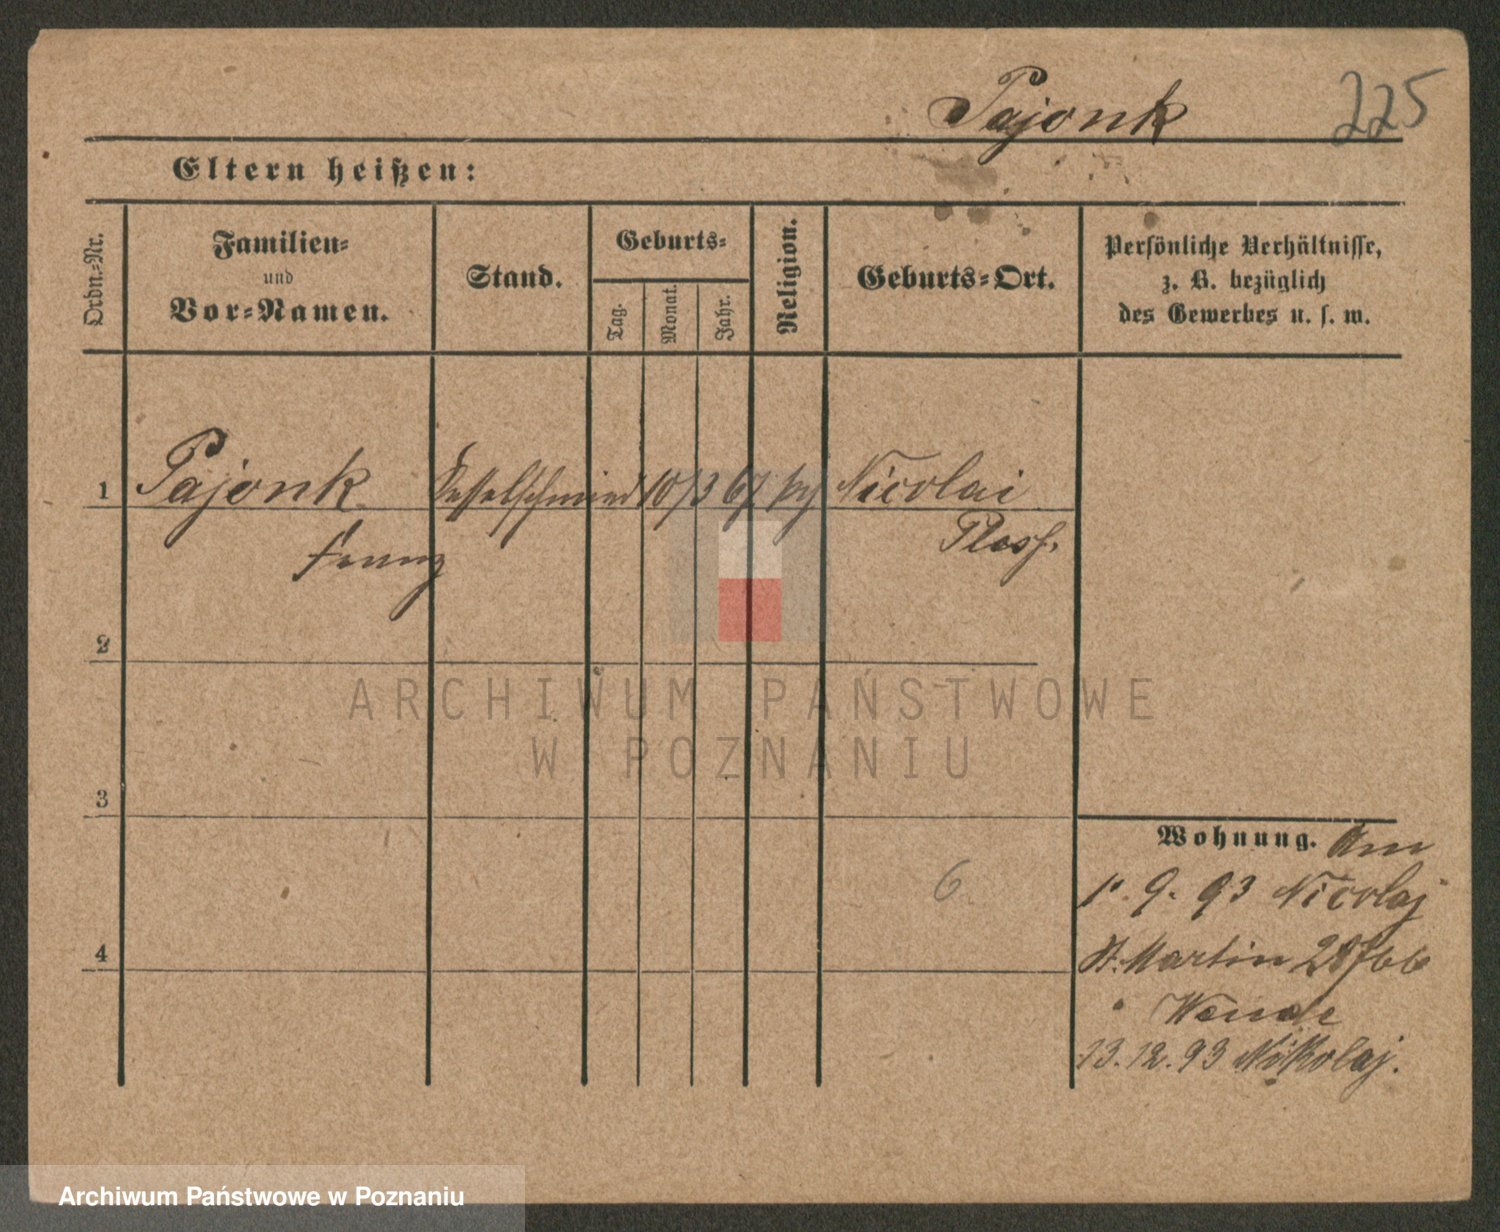 Pajonk 225
Eltern heißen:
Ordn.-Nr.
Familien-
und
Vor-Namen.
Stand.
Geburts-
Tag.
Monat.
Jahr.
Religion.
Geburts-Ort.
Persönliche Verhältnisse,
z. B. bezüglich
des Gewerbes u. s. w.
1 Pajonk Kesselschmied 10/3 67 Nicolai
Franz Pless.
2
3
4
6
Wohnung. Am
1. 9. 93 Nicolaj
St. Martin 28
Wende
13. 12. 93 Nikolaj.
ARCHIWUM PAŃSTWOWE
W POZNANIU
Archiwum Państwowe w Poznaniu